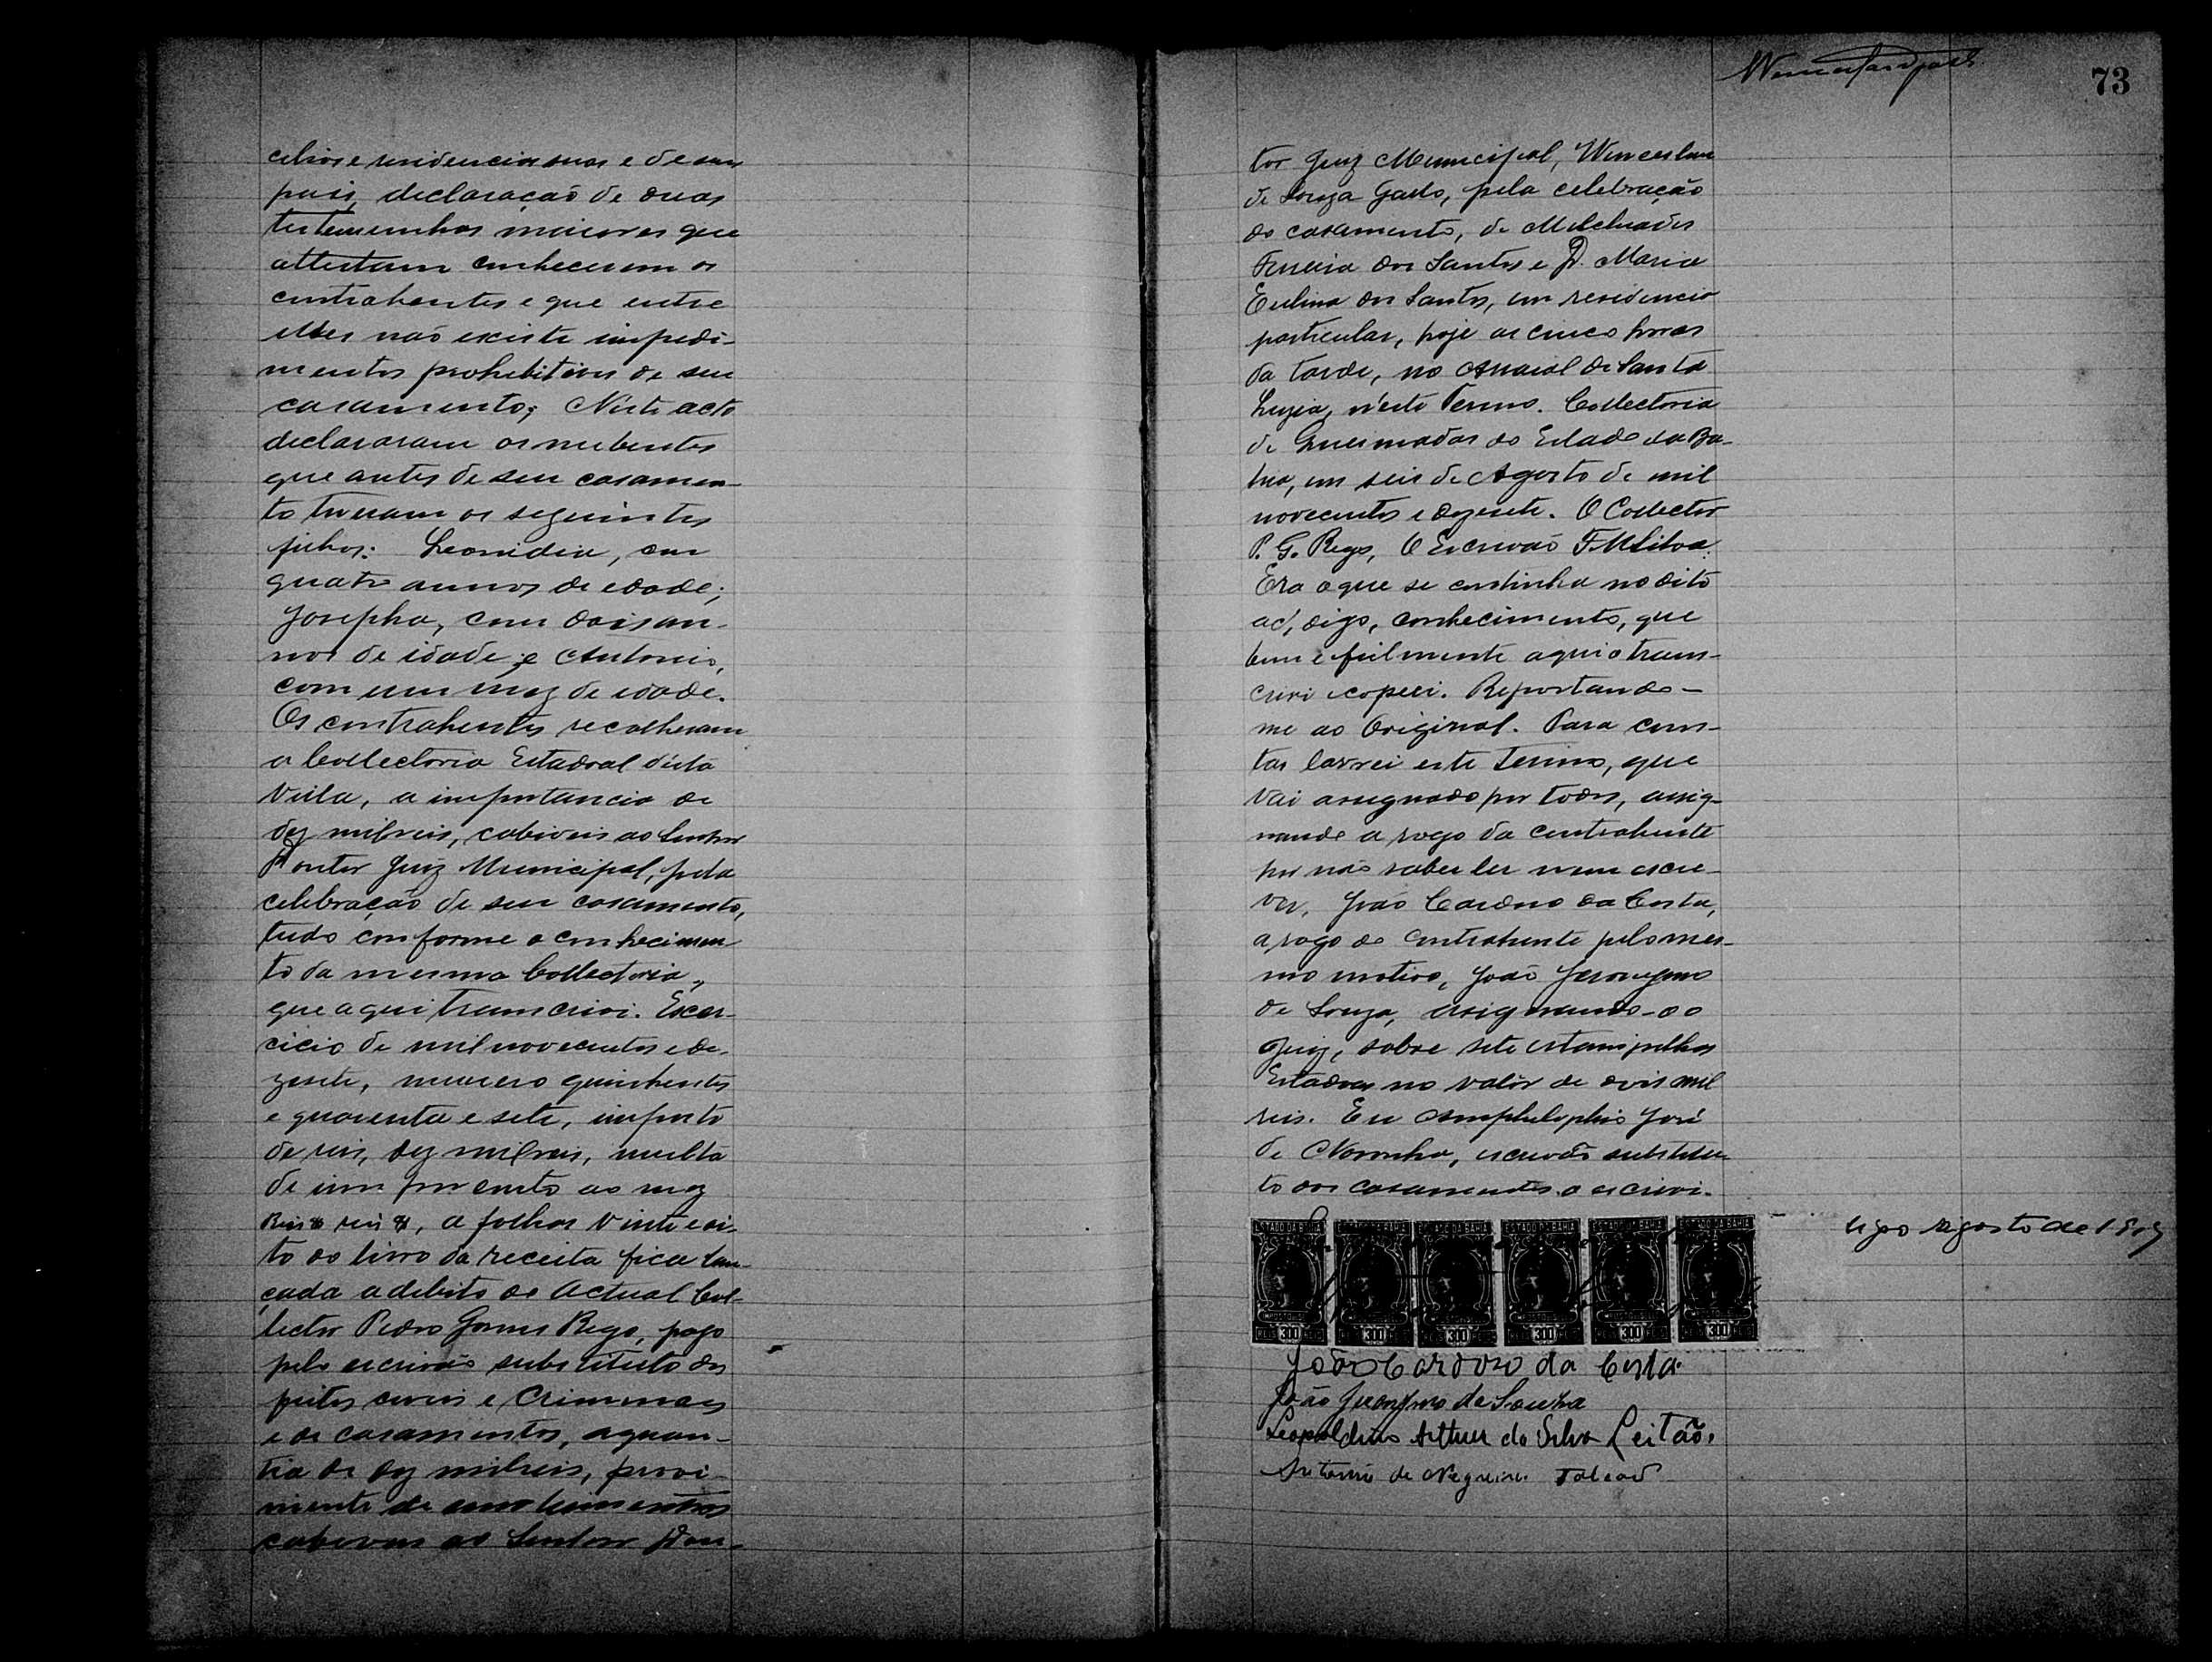 cilio e residencia suas e de seus
pais, declaração de duas
testemunhas maiores que
attestam conhecerem os
contrahentes e que entre
elles não existe impedi-
mentos prohibitivos de seu
casamento; N'este acto
declararam os nubentes
que antes de seu casamen-
to tiveram os seguintes
filhos: Leonidia, com
quatro annos de edade;
Josepha, com dois an-
nos de idade; e Antonio,
com um mez de edade.
Os contrahentes recolheram
a Collectoria Estadoal d'esta
Villa, a importancia de
dez milreis, cabiveis ao Senhor
Doutor Juiz Municipal, pela
celebração de seu casamento,
tudo conforme o conhecimen
to da mesma Collectoria,
que aqui transcrivi. Exer-
cicio de mil novecentos e de-
zesete, numero quinhentos
e quarenta e sete, imposto
de reis, dez milreis, multa
de um por cento ao mez
Reis $ reis $, a folhas vinte e oi-
to do livro da receita fica lan-
çada a debito do actual Col-
lector Pedro Gomes Rego, pago
pelo escrivão substituto dos
feitos civeis e Criminaes
e de casamentos, a quan-
tia de dez milreis, provi-
niente de emolumentos
cabiveis ao Senhor Dou-
73
tor Juiz Municipal, Wenceslau
de Souza Gallo, pela celebração
do casamento, de Melchiades
Ferreira dos Santos e D. Maria
Eulina dos Santos, em residencia
particular, hoje as cinco horas
da tarde, no Arraial de Santa
Luzia, n'este Termo. Collectoria
de Queimadas do Estado da Ba-
hia, em seis de Agosto de mil
novecentos e dezesete. O Collector
P. G. Rego, O Escrivão F M Silva.
Era o que se continha no dito
ac, digo, conhecimento, que
bem e fielmente aqui o trans-
crivi e copiei. Reportando-
me ao Original. Para cons-
tar lavrei este Termo, que
vai assignado por todos, assig-
nando a rogo da contrahente
por não saber ler nem escre-
ver, João Cardoso da Costa,
a rogo do contrahente pelo mes-
mo motivo, João Jeronymo
de Souza, assignando-o o
Juiz, sobre sete estampilhas
Estadoaes no valor de dois mil
reis. Eu Amphilophio José
de Noronha, escrivão substitu
to dos casamentos o escrivi.
ESTADO DA BAHIA ESTADO DA BAHIA ESTADO DA BAHIA ESTADO DA BAHIA ESTADO DA BAHIA ESTADO DA BAHIA
300 300 300 300 300 300
agosto de
João Cardozo da Costa
João Jeronymo de Souza
Leopoldino Arthur da Silva Leitão.
Antonio de